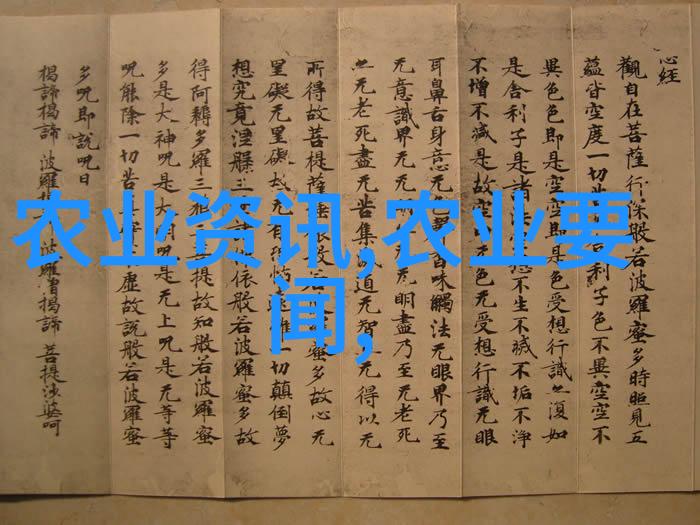 心经
觀自在菩薩行深般若波羅蜜多時照見五
蘊皆空度一切苦利子色不異空空不
異色色即是空空即是色受想行識亦復如
是舍利子是諸不生不滅不垢不淨
不增不減是故空无色无受想行識无眼
耳鼻舌身意无色百味觸法无眼界乃至
无意識界无无明盡乃至无老死
亦无老死盡无苦集道无智无得以无
所得故菩提薩般若蜜多故心无
罣礙无罣礙故无有恐怖離一切顛倒夢
想究竟涅槃三依般若波羅蜜多故
得阿耨多羅三菩提故知般若波羅蜜
多是大神咒是大明咒是无上咒是无等等
咒能除一切苦虛故說般若波羅蜜
多咒即說咒曰
揭諦揭諦 波羅揭 波羅僧揭諦 菩提莎婆呵
农业资讯,农业要
闻,